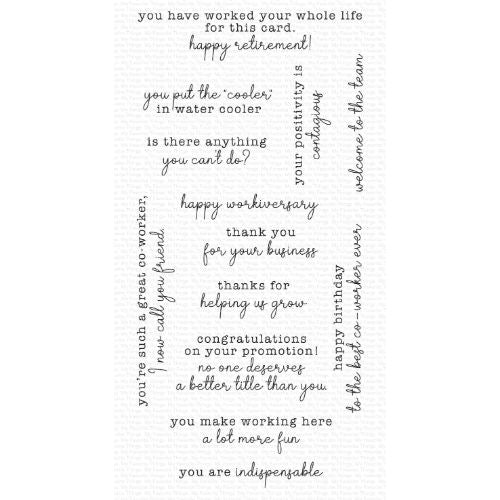 you have worked your whole life
for this card.
happy retirement!
you put the "cooler"
in water cooler
is there anything
you can't do?
your positivity is
contagious
welcome to the team
happy workiversary
thank you
for your business
you're such a great co-worker,
I now call you friend.
thanks for
helping us grow
happy birthday
to the best co-worker ever
congratulations
on your promotion!
no one deserves
a better title than you.
you make working here
a lot more fun
you are indispensable